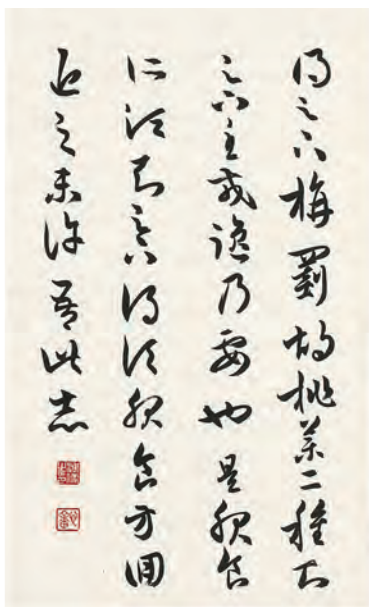 得足下旃罽胡桃藥二種知
足下至戎鹽乃要也是服食
所須知足下謂須服食方回
近之未許吾此志